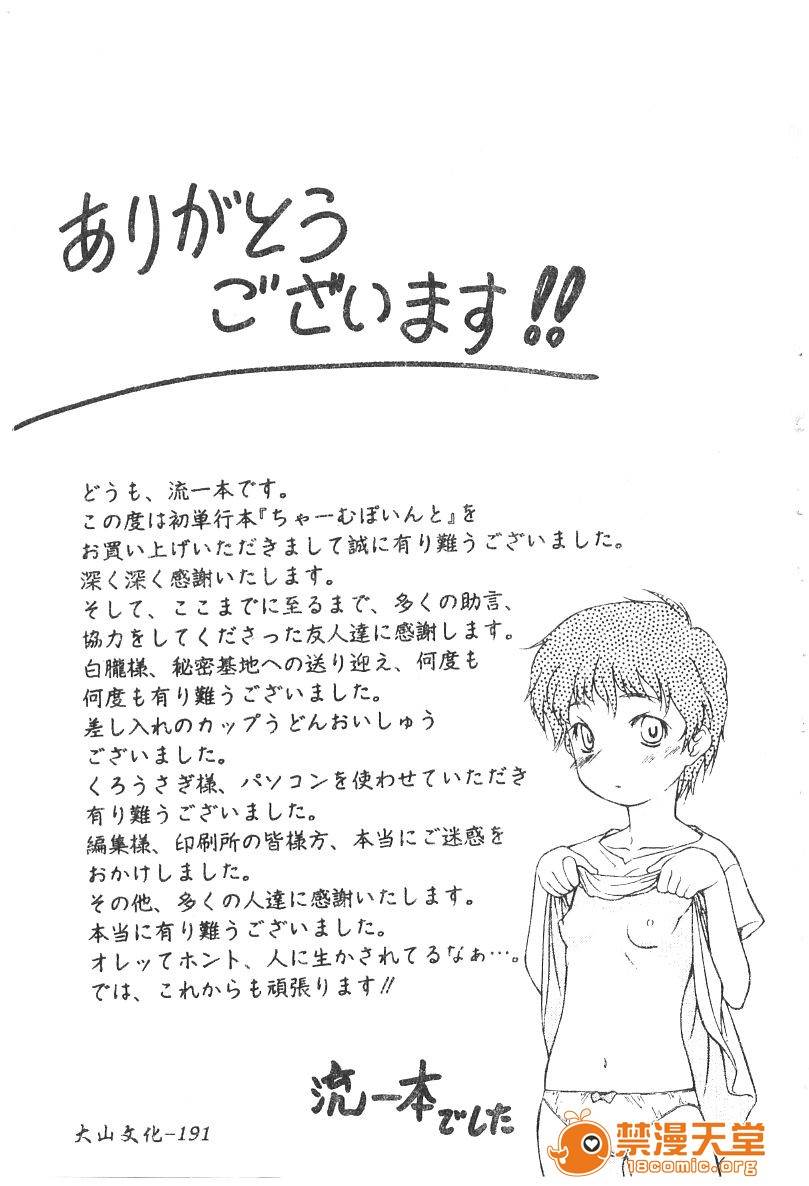 ありがとう
ございます!!
どうも、流一本です。
この度は初単行本『ちゃーむぽいんと』を
お買い上げいただきまして誠に有り難うございました。
深く深く感謝いたします。
そして、ここまでに至るまで、多くの助言、
協力をしてくださった友人達に感謝します。
白朧様、秘密基地への送り迎え、何度も
何度も有り難うございました。
差し入れのカップうどんおいしゅう
ございました。
くろうさぎ様、パソコンを使わせていただき
有り難うございました。
編集様、印刷所の皆様方、本当にご迷惑を
おかけしました。
その他、多くの人達に感謝いたします。
本当に有り難うございました。
オレってホント、人に生かされてるなぁ…。
では、これからも頑張ります!!
流一本でした
大山文化-191
禁漫天堂
18comic.org